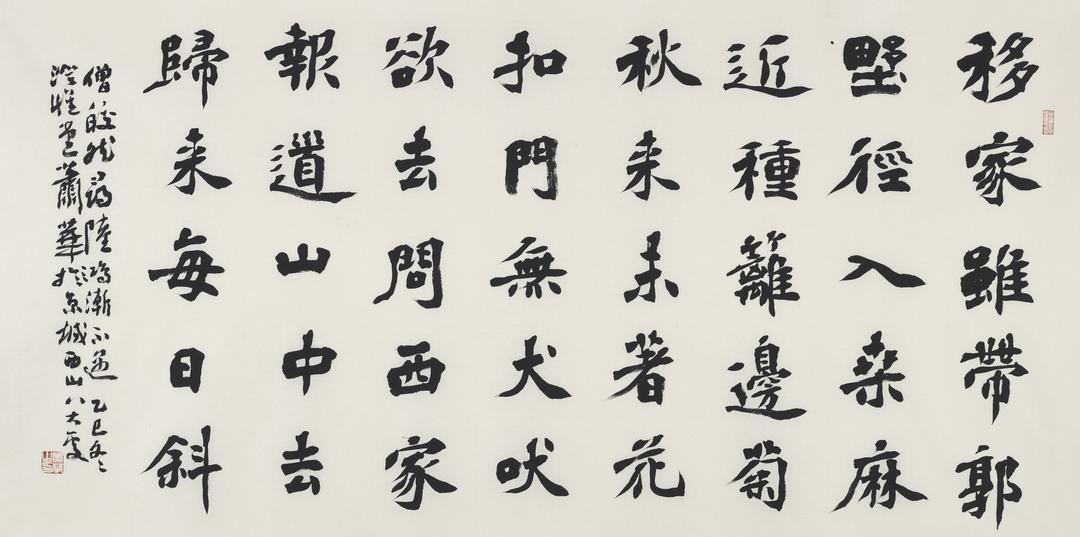 移家雖帶郭
野徑入桑麻
近種籬邊菊
秋来未著花
扣門無犬吠
欲去問西家
報道山中去
歸来每日斜
僧皎然尋陸鴻漸不遇 乙巳冬
蕭華於京城西山八大處